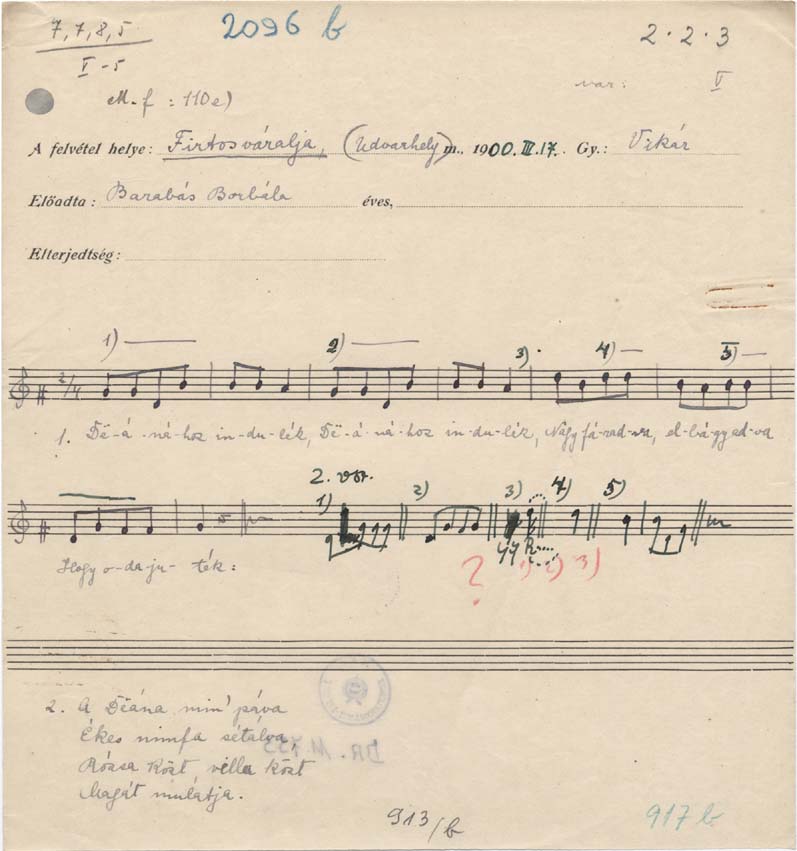 7, 7, 8, 5
2096 b
2·2·3
V-5
var: V
M. f : 110e)
A felvétel helye: Firtosváralja, (Udvarhely) m., 1900. III. 17. Gy.: Vikár
Előadta: Barabás Borbála éves,
Elterjedtség:
1) 2) 3) 4) 5)
2/4
1. Dë-á-ná-hoz in-du-lék, Dë-á-ná-hoz in-du-lék, Nagy fá-rad-va, el-bá-gyad-va
2. vsz.
1) 2) 3) 4) 5)
Hogy o-da-ju-ték:
? 1) 2) 3)
2. A Dëána min' páva
Ékes nimfa sétálva,
Rózsa közt, viola közt
Magát mulátja.
913/b
917 b